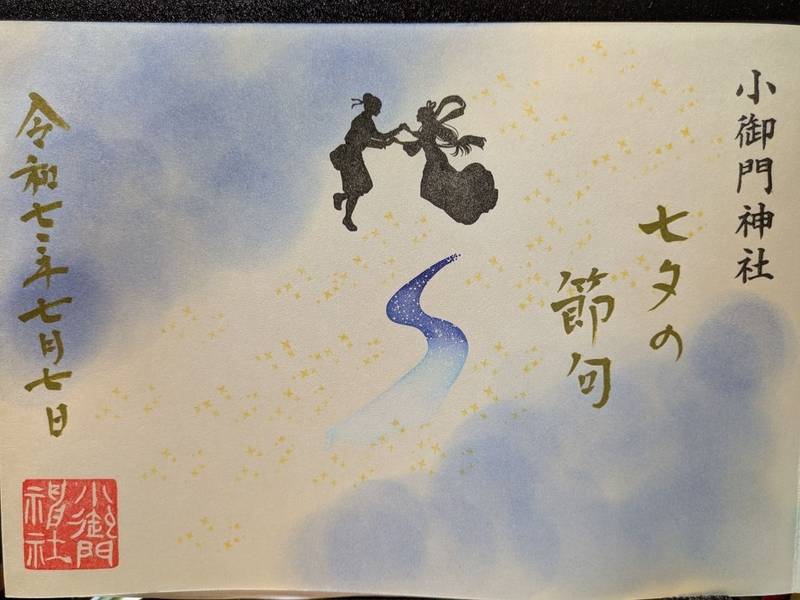 小御門神社
七夕の
節句
令和七年七月七日
小御門
神社